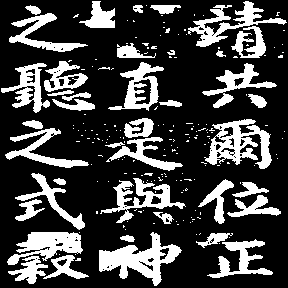 靖共爾位正
直是與神
之聽之式穀